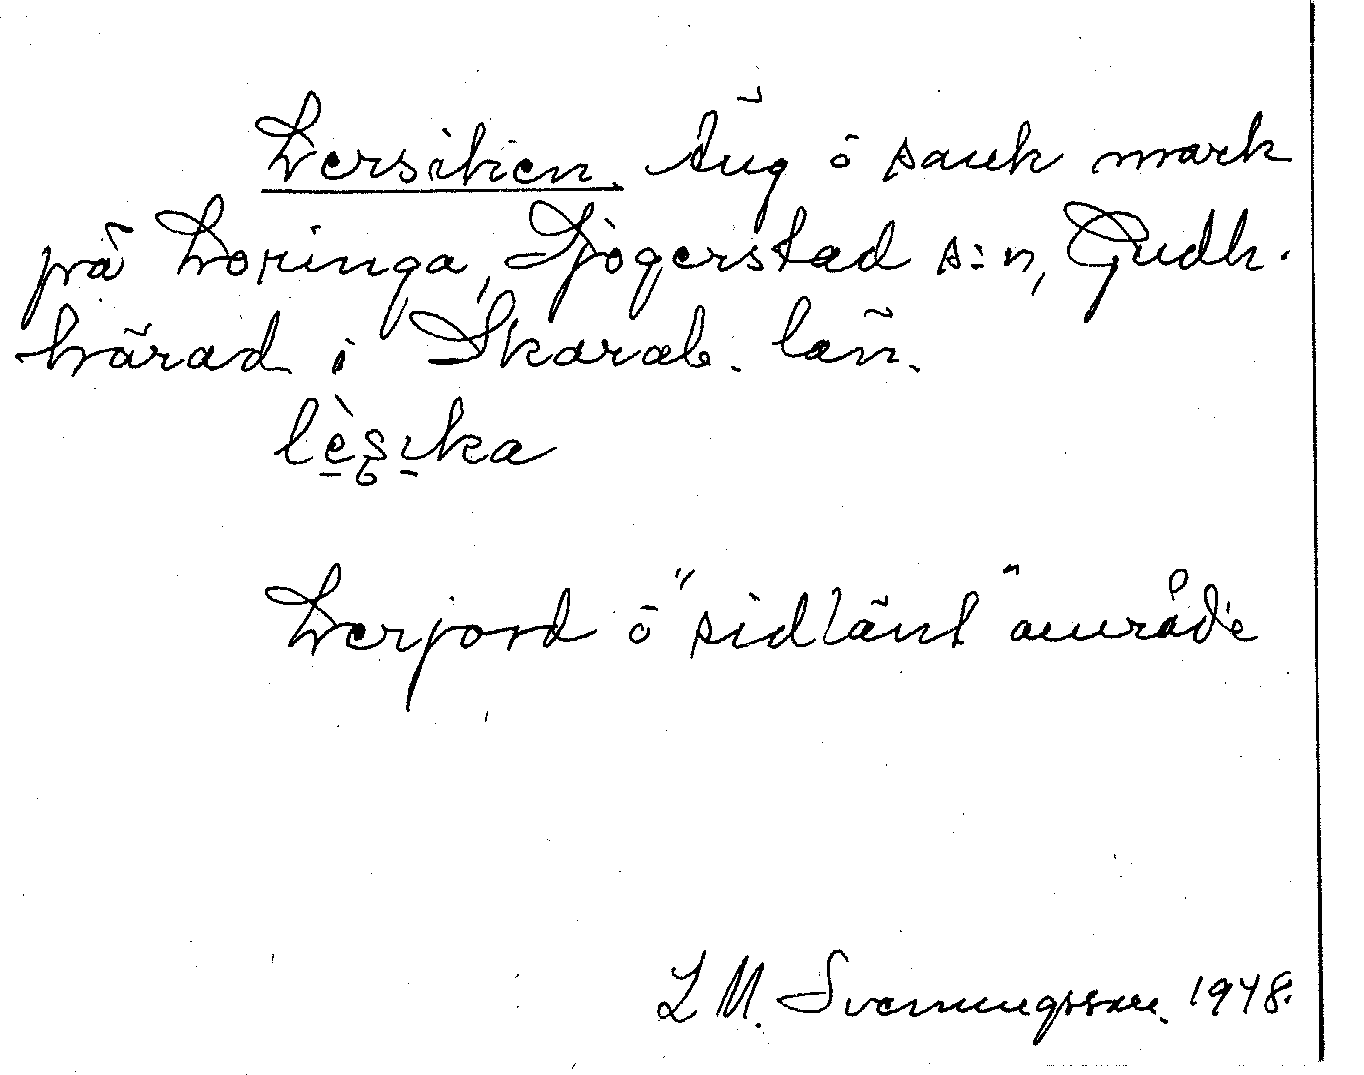 Lersiken. äng ö sank mark
på Loringa, Sjögerstad s:n, Gudh.
härad i Skarab. län.
lès̥ɩka
Lerjord ö "sidlänt" område
L M. Svenningsson. 1948.